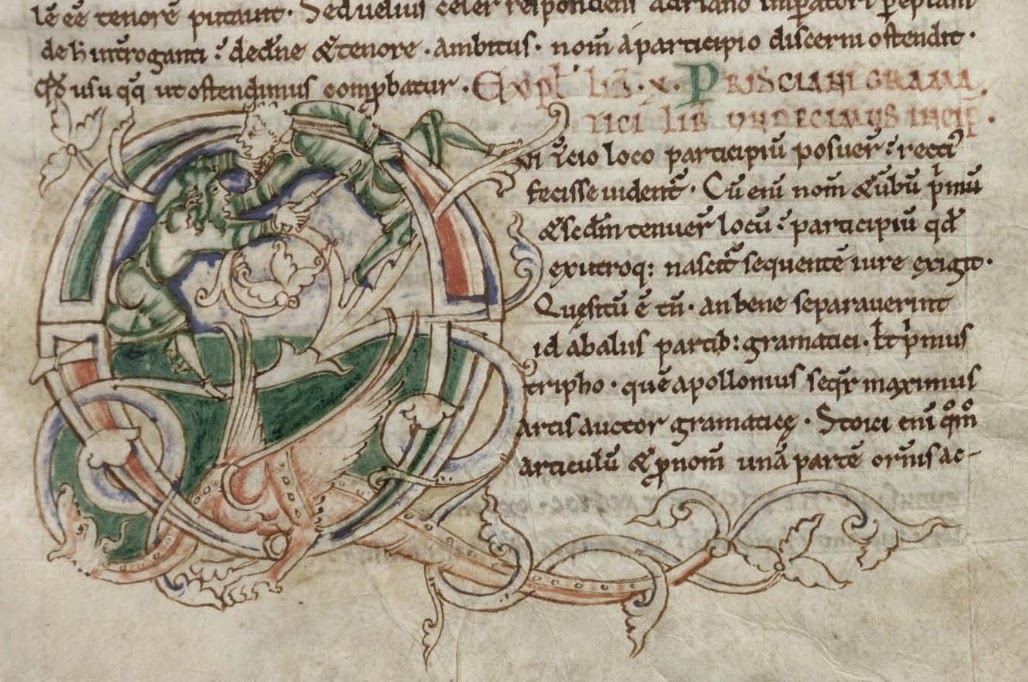 lē eē tenorē putaūt. Sed velius celer respondens adriano imꝑatori
de h̄ int̄roganti ꝛ decl̄ne & tenore. ambitus. nom̄ á participio discerni oſtendit.
Qđ usu qͣq; ut oſtendimus comꝓbatur. Expł lib̄. x. PRISCIANI GRAMA
TICI LIB UNDECIMUS INCIP̄.
i t̄cio loco participiū posuer̄
fecisse uident̄. Cū enī nom̄ & ūbū p̄mū
& sedm̄ tenuer̄ locū ꝛ participiū qđ
ex utroq; nascit̄ sequente iure exigit.
Quęsitū ē tn̄. an bene separauerint
id ab aliis partib; gramatici. & p̄mus
tripho. quē apollonius seq̄r maximus
artis auctor gramaticę. Stoici enī qͦm̄
articulū & ꝓnom̄ unā partē or̄nis ac-